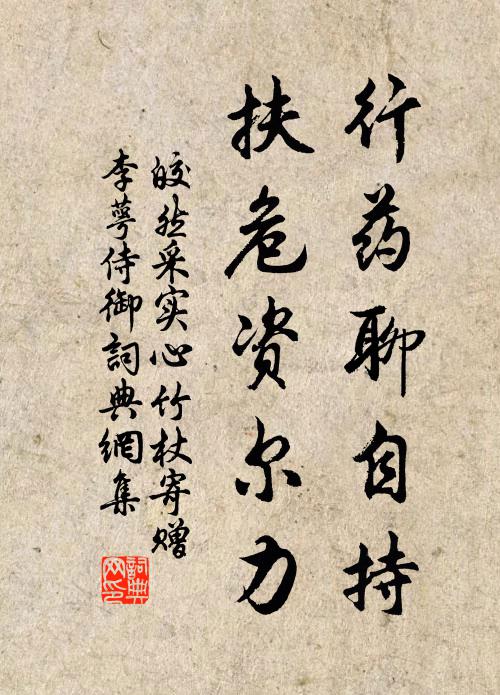 行药聊自持
扶危资尔力
皎然采实心竹杖寄赠
李萼侍御詞典網集
詞典网印